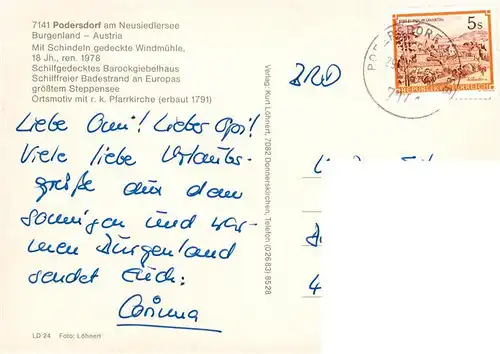 7141 Podersdorf am Neusiedlersee
Burgenland – Austria
Mit Schindeln gedeckte Windmühle,
18 Jh., ren. 1978
Schilfgedecktes Barockgiebelhaus
Schilffreier Badestrand an Europas
größtem Steppensee
Ortsmotiv mit r. k. Pfarrkirche (erbaut 1791)
Liebe Omi! Lieber Opi!
Viele liebe Urlaubs-
grüße aus dem
sonnigen und war-
men Burgenland
sendet Euch:
Corinna
LD 24 Foto: Löhnert
Verlag: Kurt Löhnert, 7082 Donnerskirchen, Telefon (02683) 8528
BRD
5s
REPUBLIK ÖSTERREICH
PODERSDORF